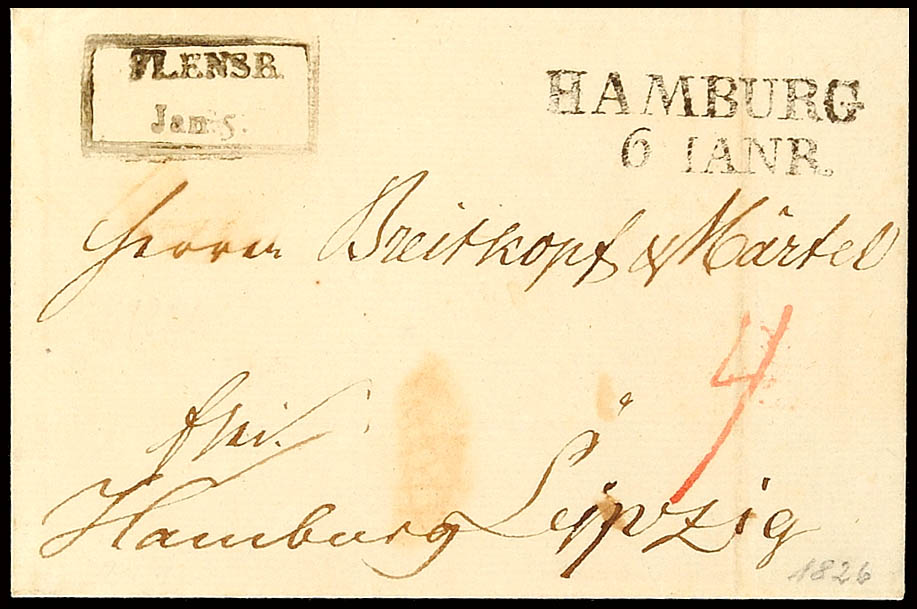 FLENSB.
Jan: 5.
HAMBURG
6 IANR.
Herren Breitkopf & Härtel
4
frei.
Hamburg Leipzig
1826